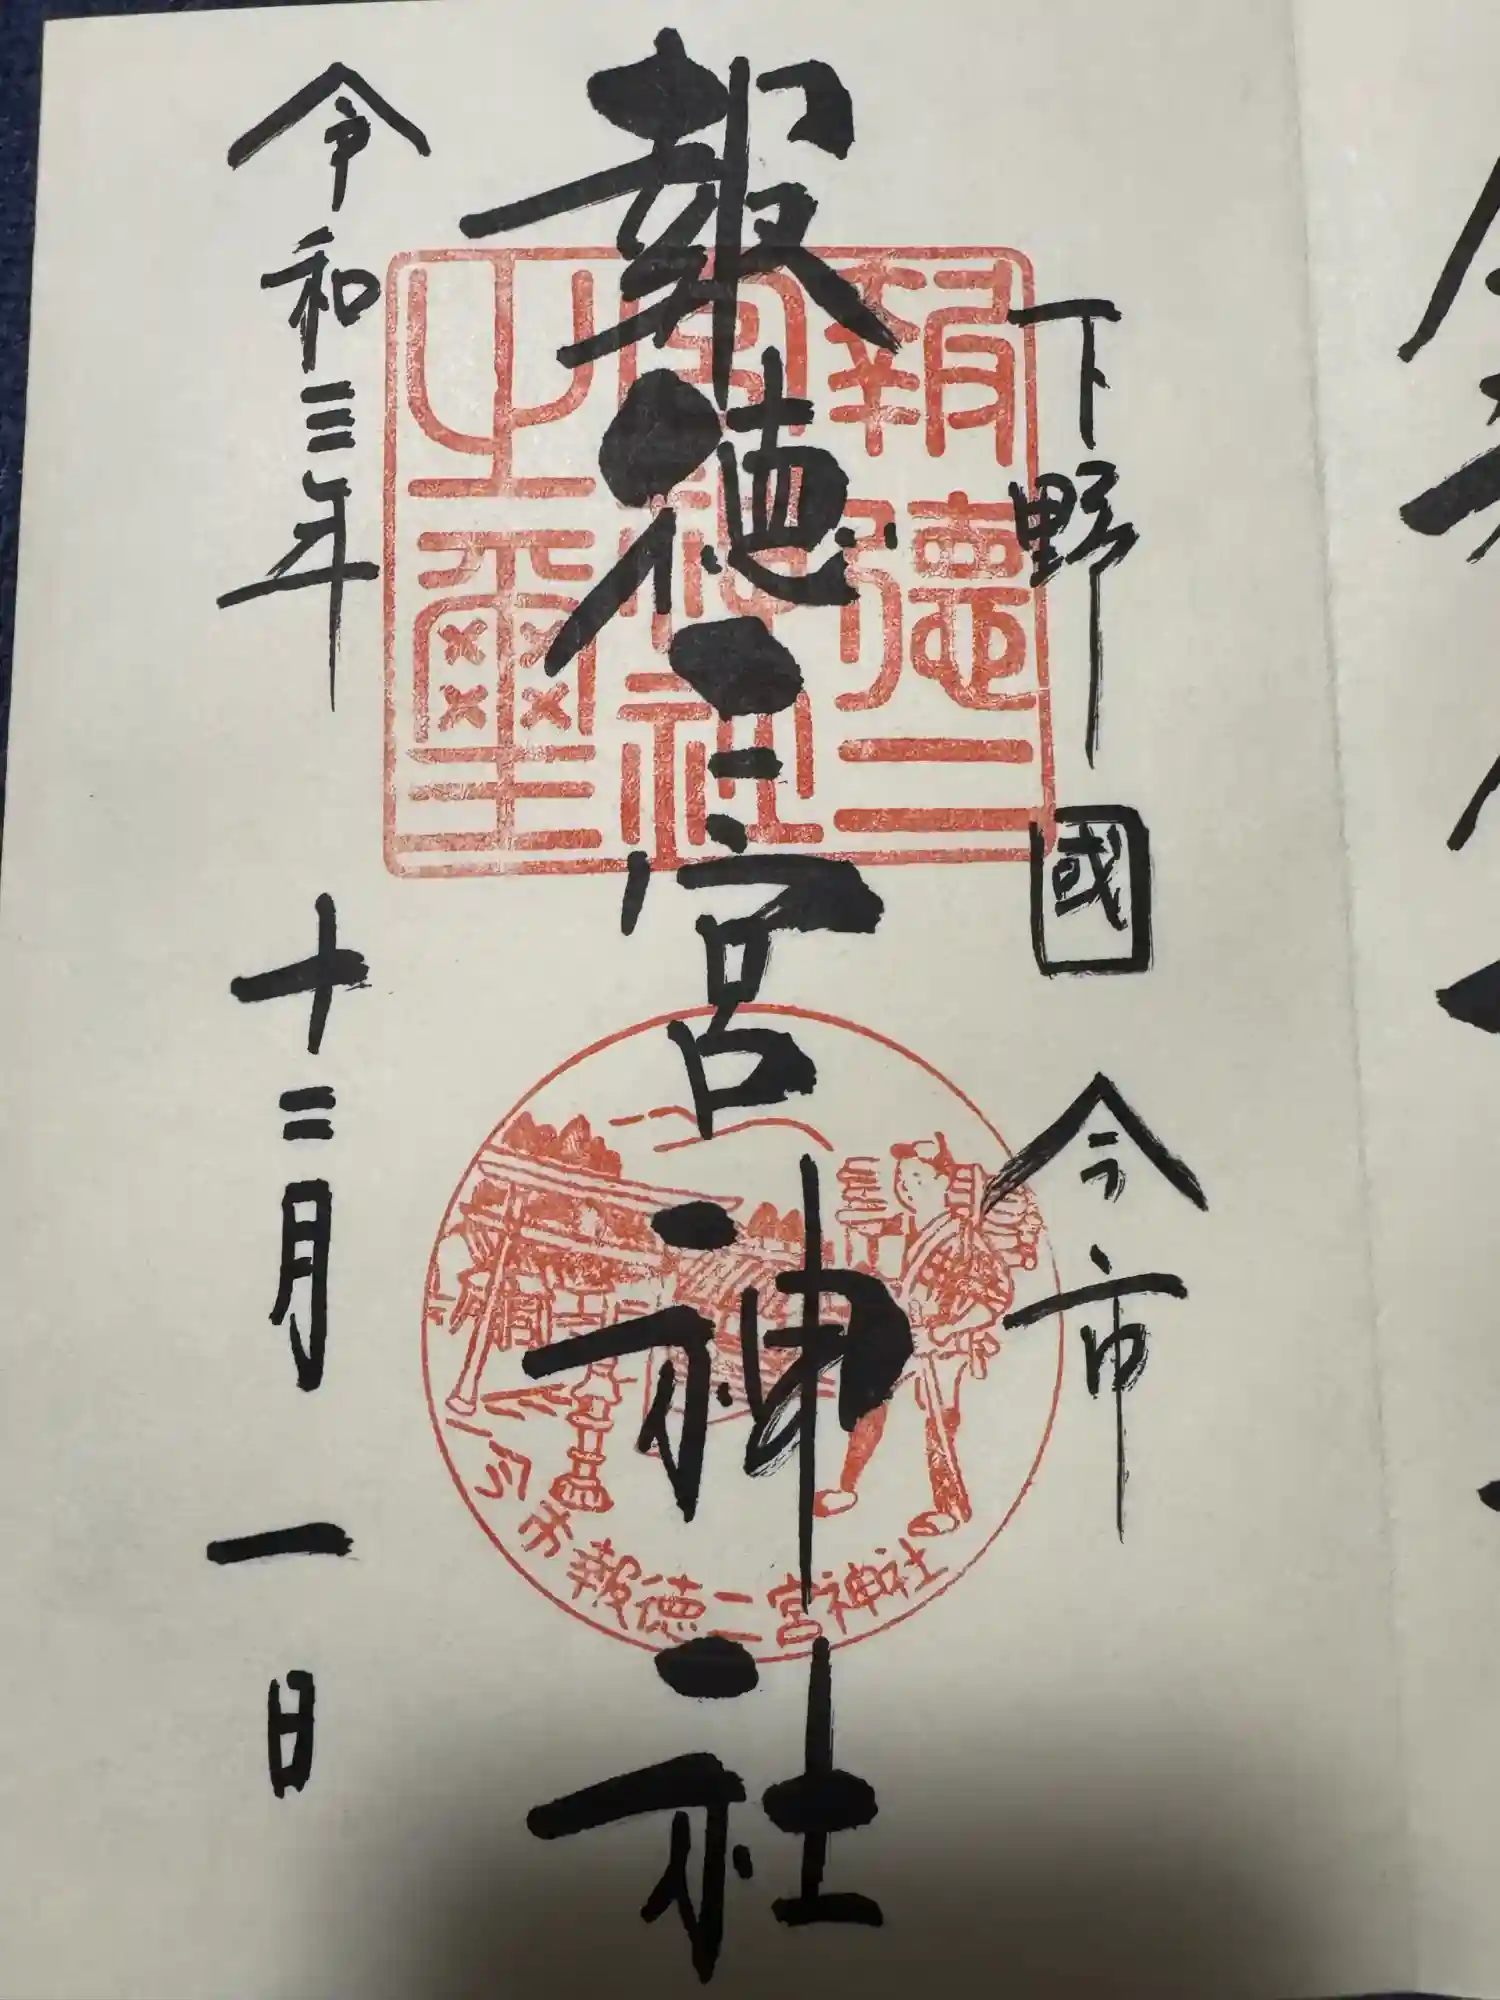 下野國今市
報徳二宮神社
令和三年十二月一日
報徳二
宮神社
之璽
今市報徳二宮神社